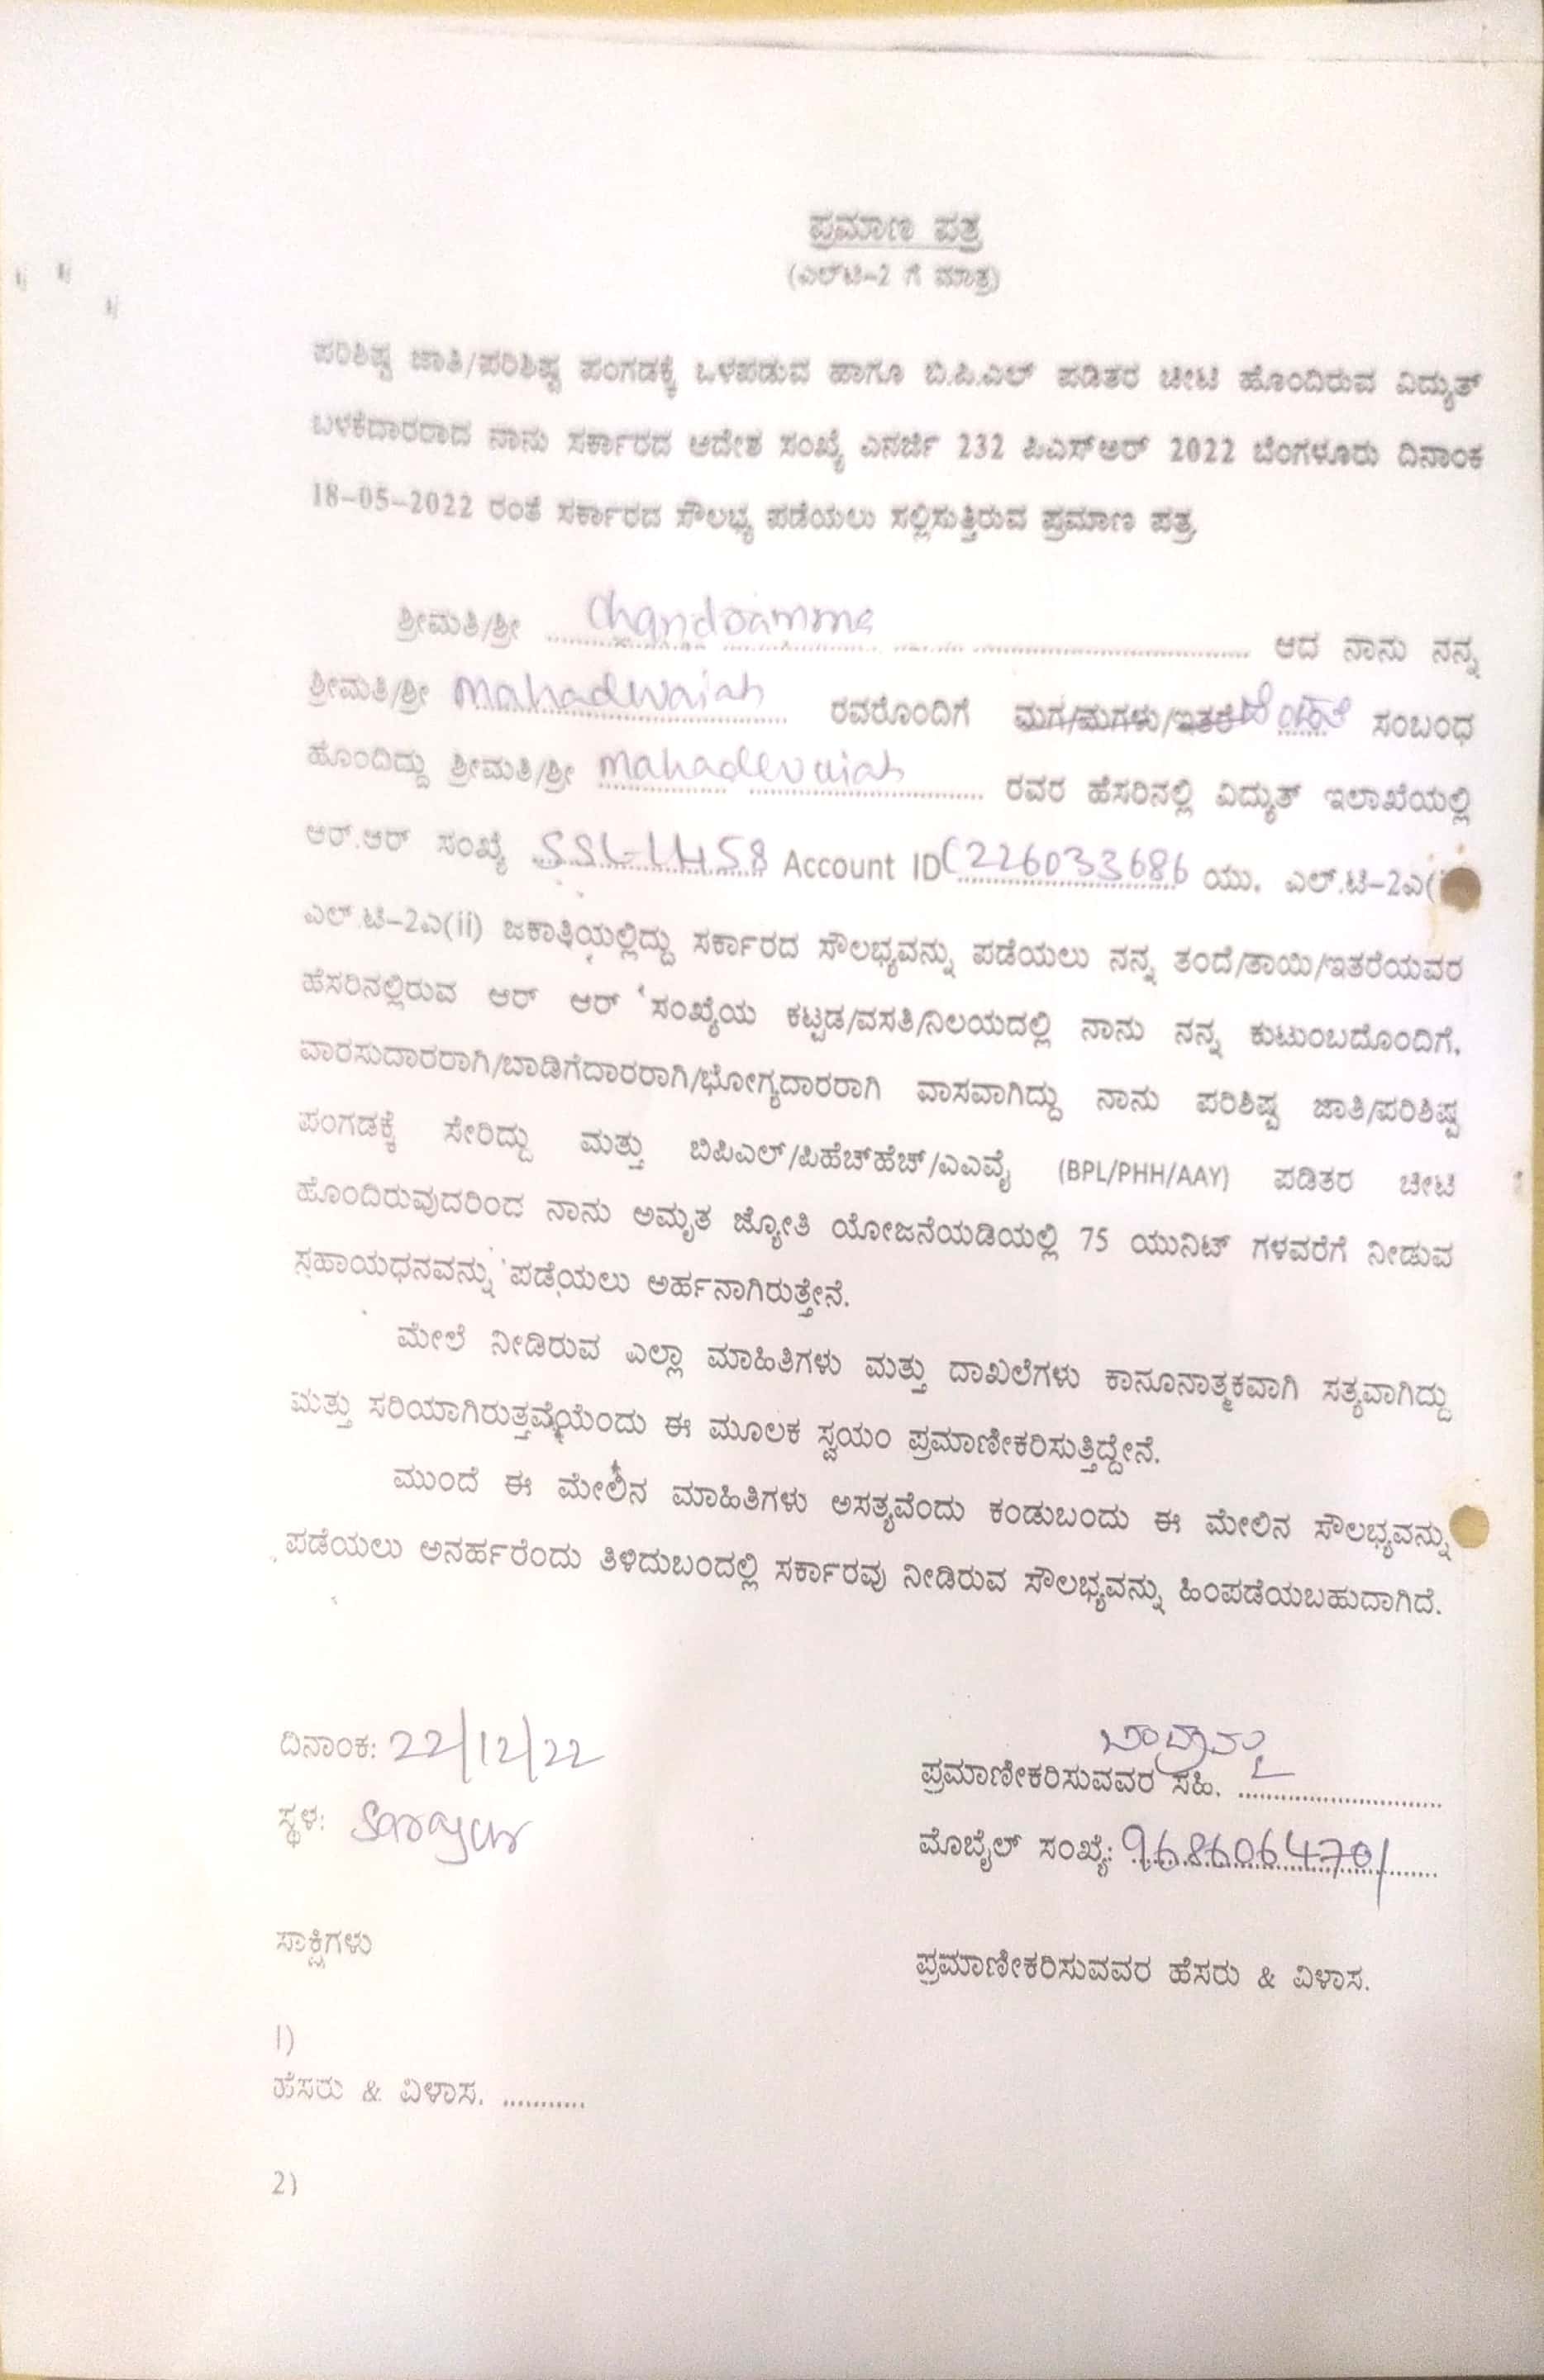 ಪ್ರಮಾಣ ಪತ್ರ
(ಎಲ್‌ಟಿ-2 ಗೆ ಮಾತ್ರ)
ಪರಿಶಿಷ್ಟ ಜಾತಿ/ಪರಿಶಿಷ್ಟ ಪಂಗಡಕ್ಕೆ ಒಳಪಡುವ ಹಾಗೂ ಬಿ.ಪಿ.ಎಲ್ ಪಡಿತರ ಚೀಟಿ ಹೊಂದಿರುವ ವಿದ್ಯುತ್
ಬಳಕೆದಾರರಾದ ನಾನು ಸರ್ಕಾರದ ಆದೇಶ ಸಂಖ್ಯೆ ಎನರ್ಜಿ 232 ಪಿಎಸ್ಆರ್ 2022 ಬೆಂಗಳೂರು ದಿನಾಂಕ
18-05-2022 ರಂತೆ ಸರ್ಕಾರದ ಸೌಲಭ್ಯ ಪಡೆಯಲು ಸಲ್ಲಿಸುತ್ತಿರುವ ಪ್ರಮಾಣ ಪತ್ರ
ಶ್ರೀಮತಿ/ಶ್ರೀ Chandramma ಆದ ನಾನು ನನ್ನ
ಶ್ರೀಮತಿ/ಶ್ರೀ mahadevaiah ರವರೊಂದಿಗೆ ಮಗ/ಮಗಳು/ಇತರೆ ಸಂಬಂಧ
ಹೊಂದಿದ್ದು ಶ್ರೀಮತಿ/ಶ್ರೀ mahadevaiah ರವರ ಹೆಸರಿನಲ್ಲಿ ವಿದ್ಯುತ್ ಇಲಾಖೆಯಲ್ಲಿ
ಆರ್.ಆರ್ ಸಂಖ್ಯೆ SSL-1458 Account ID (226033686 ಯು. ಎಲ್.ಟಿ-2ಎ(
ಎಲ್.ಟಿ-2ಎ(ii) ಜಕಾತಿಯಲ್ಲಿದ್ದು ಸರ್ಕಾರದ ಸೌಲಭ್ಯವನ್ನು ಪಡೆಯಲು ನನ್ನ ತಂದೆ/ತಾಯಿ/ಇತರೆಯವರ
ಹೆಸರಿನಲ್ಲಿರುವ ಆರ್ ಆರ್ ಸಂಖ್ಯೆಯ ಕಟ್ಟಡ/ವಸತಿ/ನಿಲಯದಲ್ಲಿ ನಾನು ನನ್ನ ಕುಟುಂಬದೊಂದಿಗೆ.
ವಾರಸುದಾರರಾಗಿ/ಬಾಡಿಗೆದಾರರಾಗಿ/ಭೋಗ್ಯದಾರರಾಗಿ ವಾಸವಾಗಿದ್ದು ನಾನು ಪರಿಶಿಷ್ಟ ಜಾತಿ/ಪರಿಶಿಷ್ಟ
ಪಂಗಡಕ್ಕೆ ಸೇರಿದ್ದು ಮತ್ತು ಬಿಪಿಎಲ್/ಪಿಹೆಚ್‌ಹೆಚ್/ಎಎವೈ (BPL/PHH/AAY) ಪಡಿತರ ಚೀಟಿ
ಹೊಂದಿರುವುದರಿಂದ ನಾನು ಅಮೃತ ಜ್ಯೋತಿ ಯೋಜನೆಯಡಿಯಲ್ಲಿ 75 ಯುನಿಟ್ ಗಳವರೆಗೆ ನೀಡುವ
ಸಹಾಯಧನವನ್ನು ಪಡೆಯಲು ಅರ್ಹನಾಗಿರುತ್ತೇನೆ.
ಮೇಲೆ ನೀಡಿರುವ ಎಲ್ಲಾ ಮಾಹಿತಿಗಳು ಮತ್ತು ದಾಖಲೆಗಳು ಕಾನೂನಾತ್ಮಕವಾಗಿ ಸತ್ಯವಾಗಿದ್ದು
ಮತ್ತು ಸರಿಯಾಗಿರುತ್ತವೆಯೆಂದು ಈ ಮೂಲಕ ಸ್ವಯಂ ಪ್ರಮಾಣೀಕರಿಸುತ್ತಿದ್ದೇನೆ.
ಮುಂದೆ ಈ ಮೇಲಿನ ಮಾಹಿತಿಗಳು ಅಸತ್ಯವೆಂದು ಕಂಡುಬಂದು ಈ ಮೇಲಿನ ಸೌಲಭ್ಯವನ್ನು
ಪಡೆಯಲು ಅನರ್ಹರೆಂದು ತಿಳಿದುಬಂದಲ್ಲಿ ಸರ್ಕಾರವು ನೀಡಿರುವ ಸೌಲಭ್ಯವನ್ನು ಹಿಂಪಡೆಯಬಹುದಾಗಿದೆ.
ದಿನಾಂಕ: 22/12/22
ಪ್ರಮಾಣೀಕರಿಸುವವರ ಸಹಿ.
ಸ್ಥಳ:
ಮೊಬೈಲ್ ಸಂಖ್ಯೆ: 9686064701
ಸಾಕ್ಷಿಗಳು
ಪ್ರಮಾಣೀಕರಿಸುವವರ ಹೆಸರು & ವಿಳಾಸ.
1)
ಹೆಸರು & ವಿಳಾಸ. ...........
2)